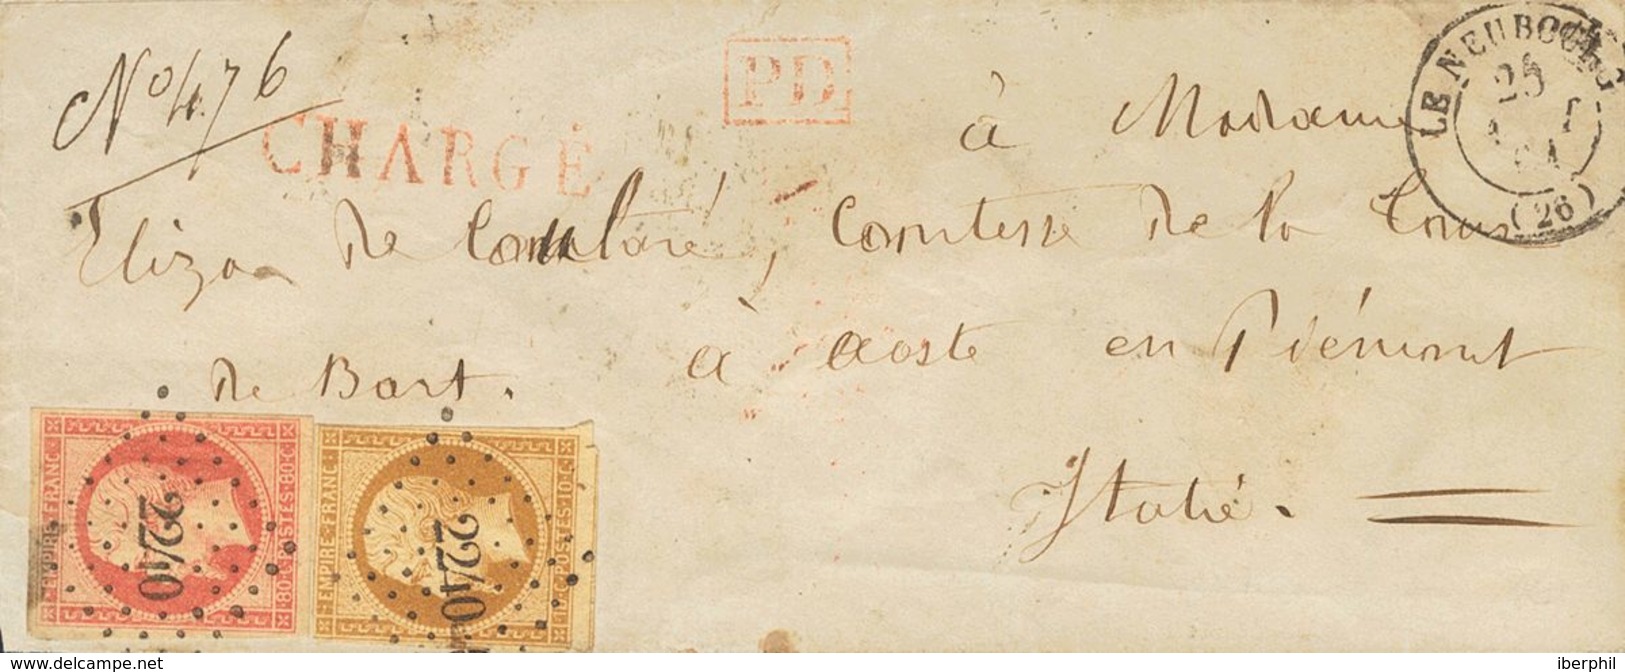 No 476
CHARGÉ
PD
LE NEUBOURG
25
(26)
à Madame
Eliza de , Comtesse de la Tour
de Bart. à Aoste en Piémont
Italie.
EMPIRE FRANC
POSTES 80 C
80 C
2240
EMPIRE FRANC
POSTES 10 C
10 C
2240
www.delcampe.net
iberphil